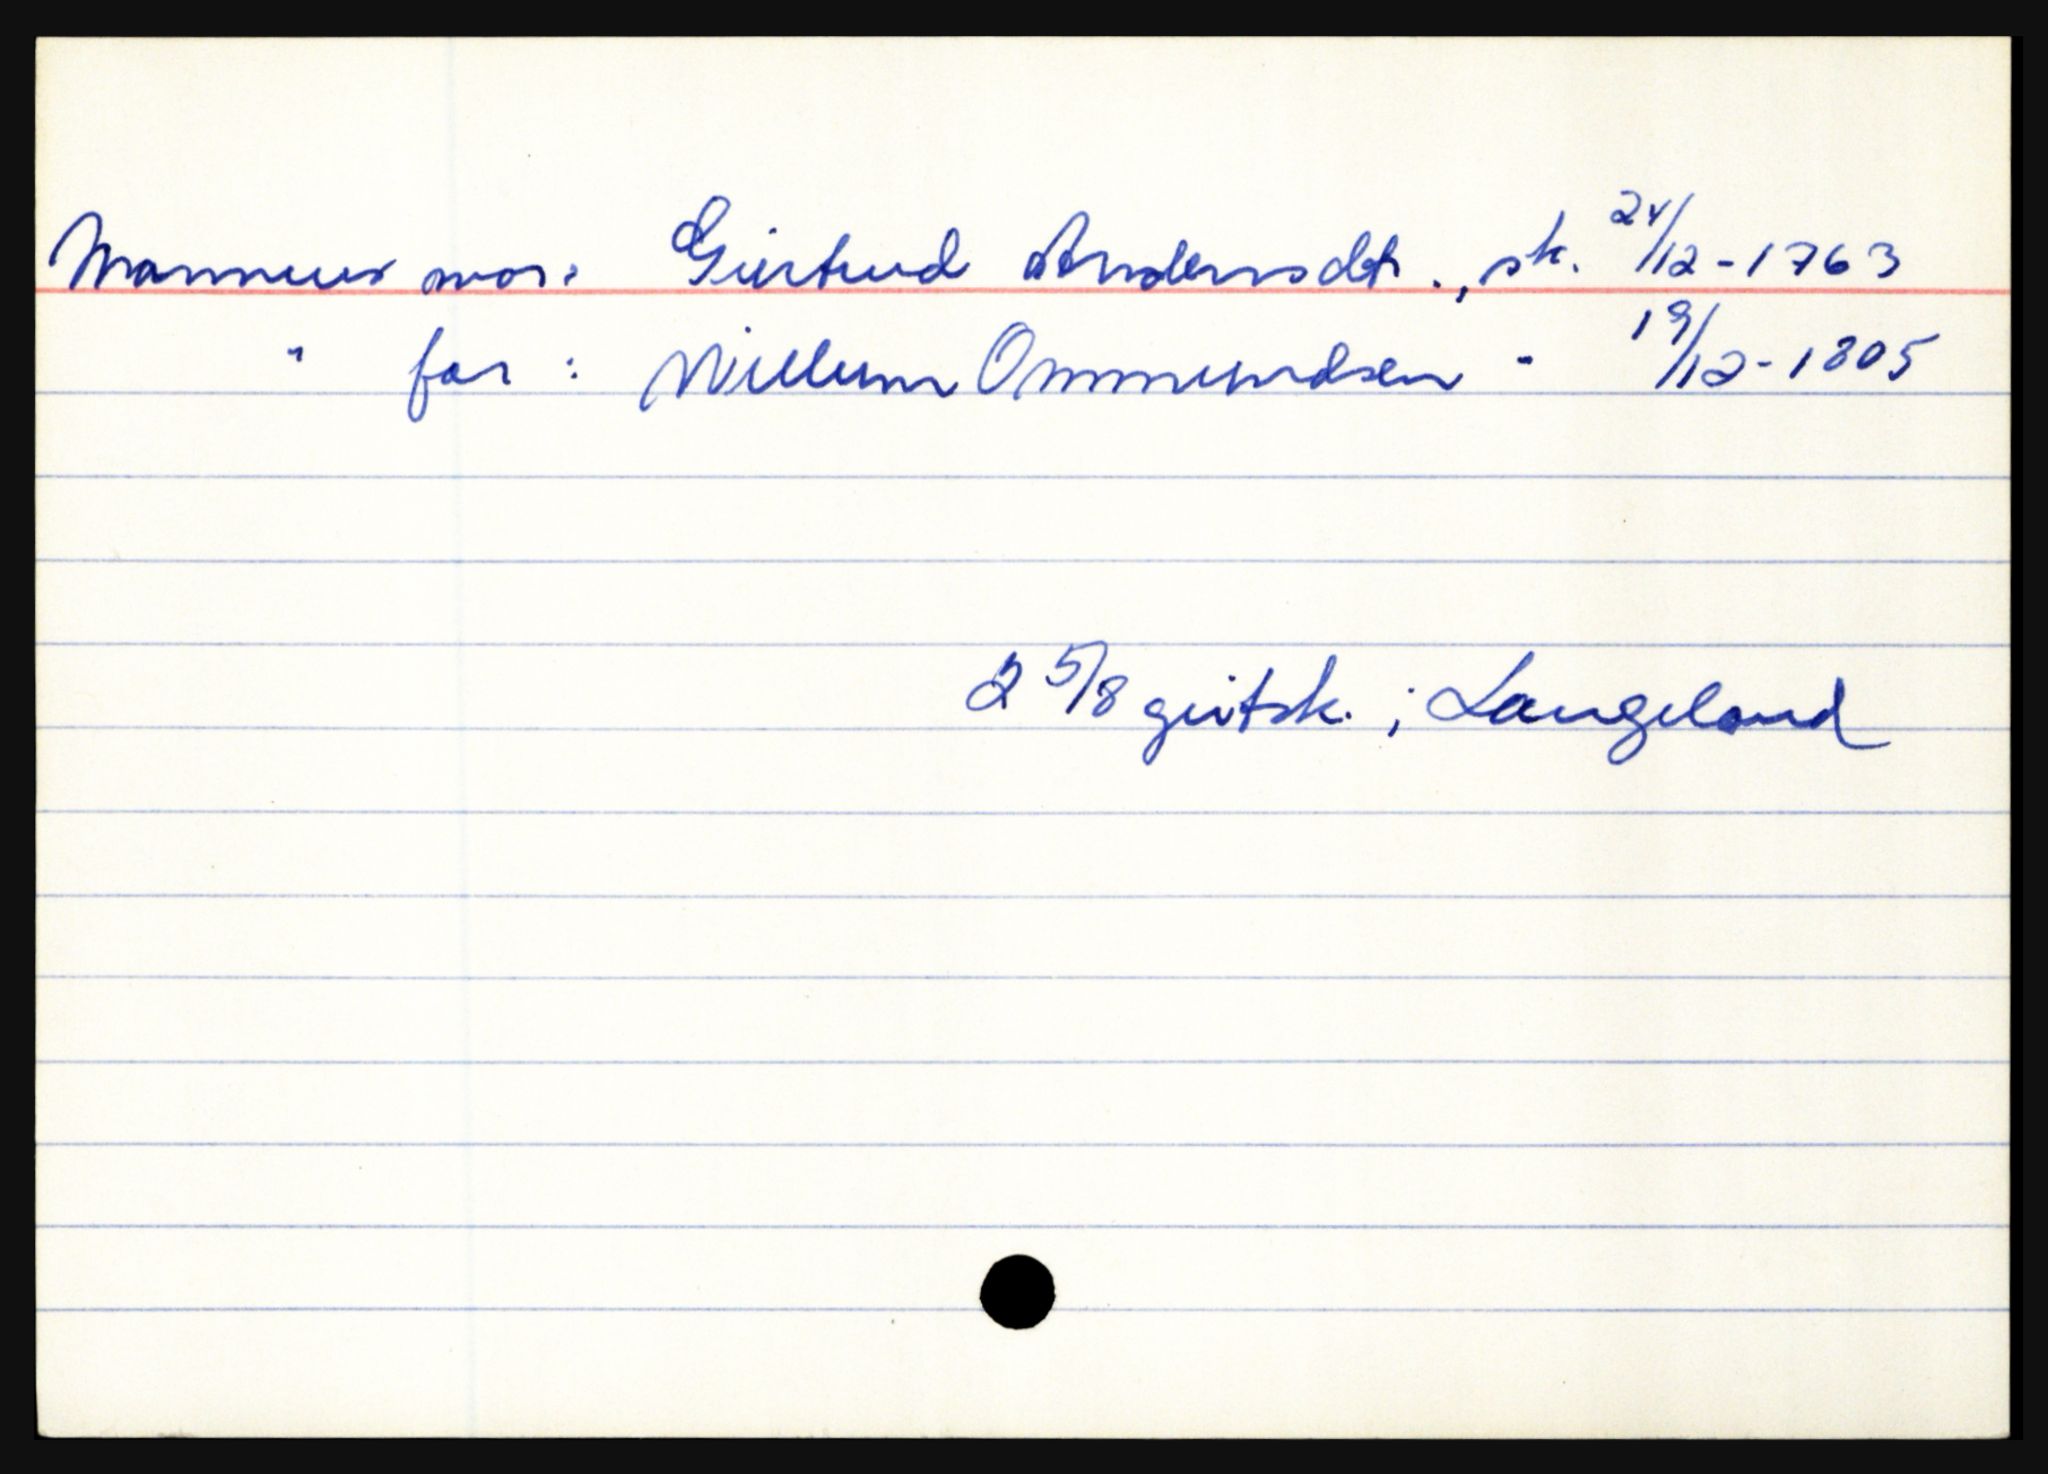 Mannens mor: Giertrud Andersdtr., sk. 24/12-1763
" far: Willum Ommundsen " 19/12-1805
2 5/8 geitsk. i Langeland